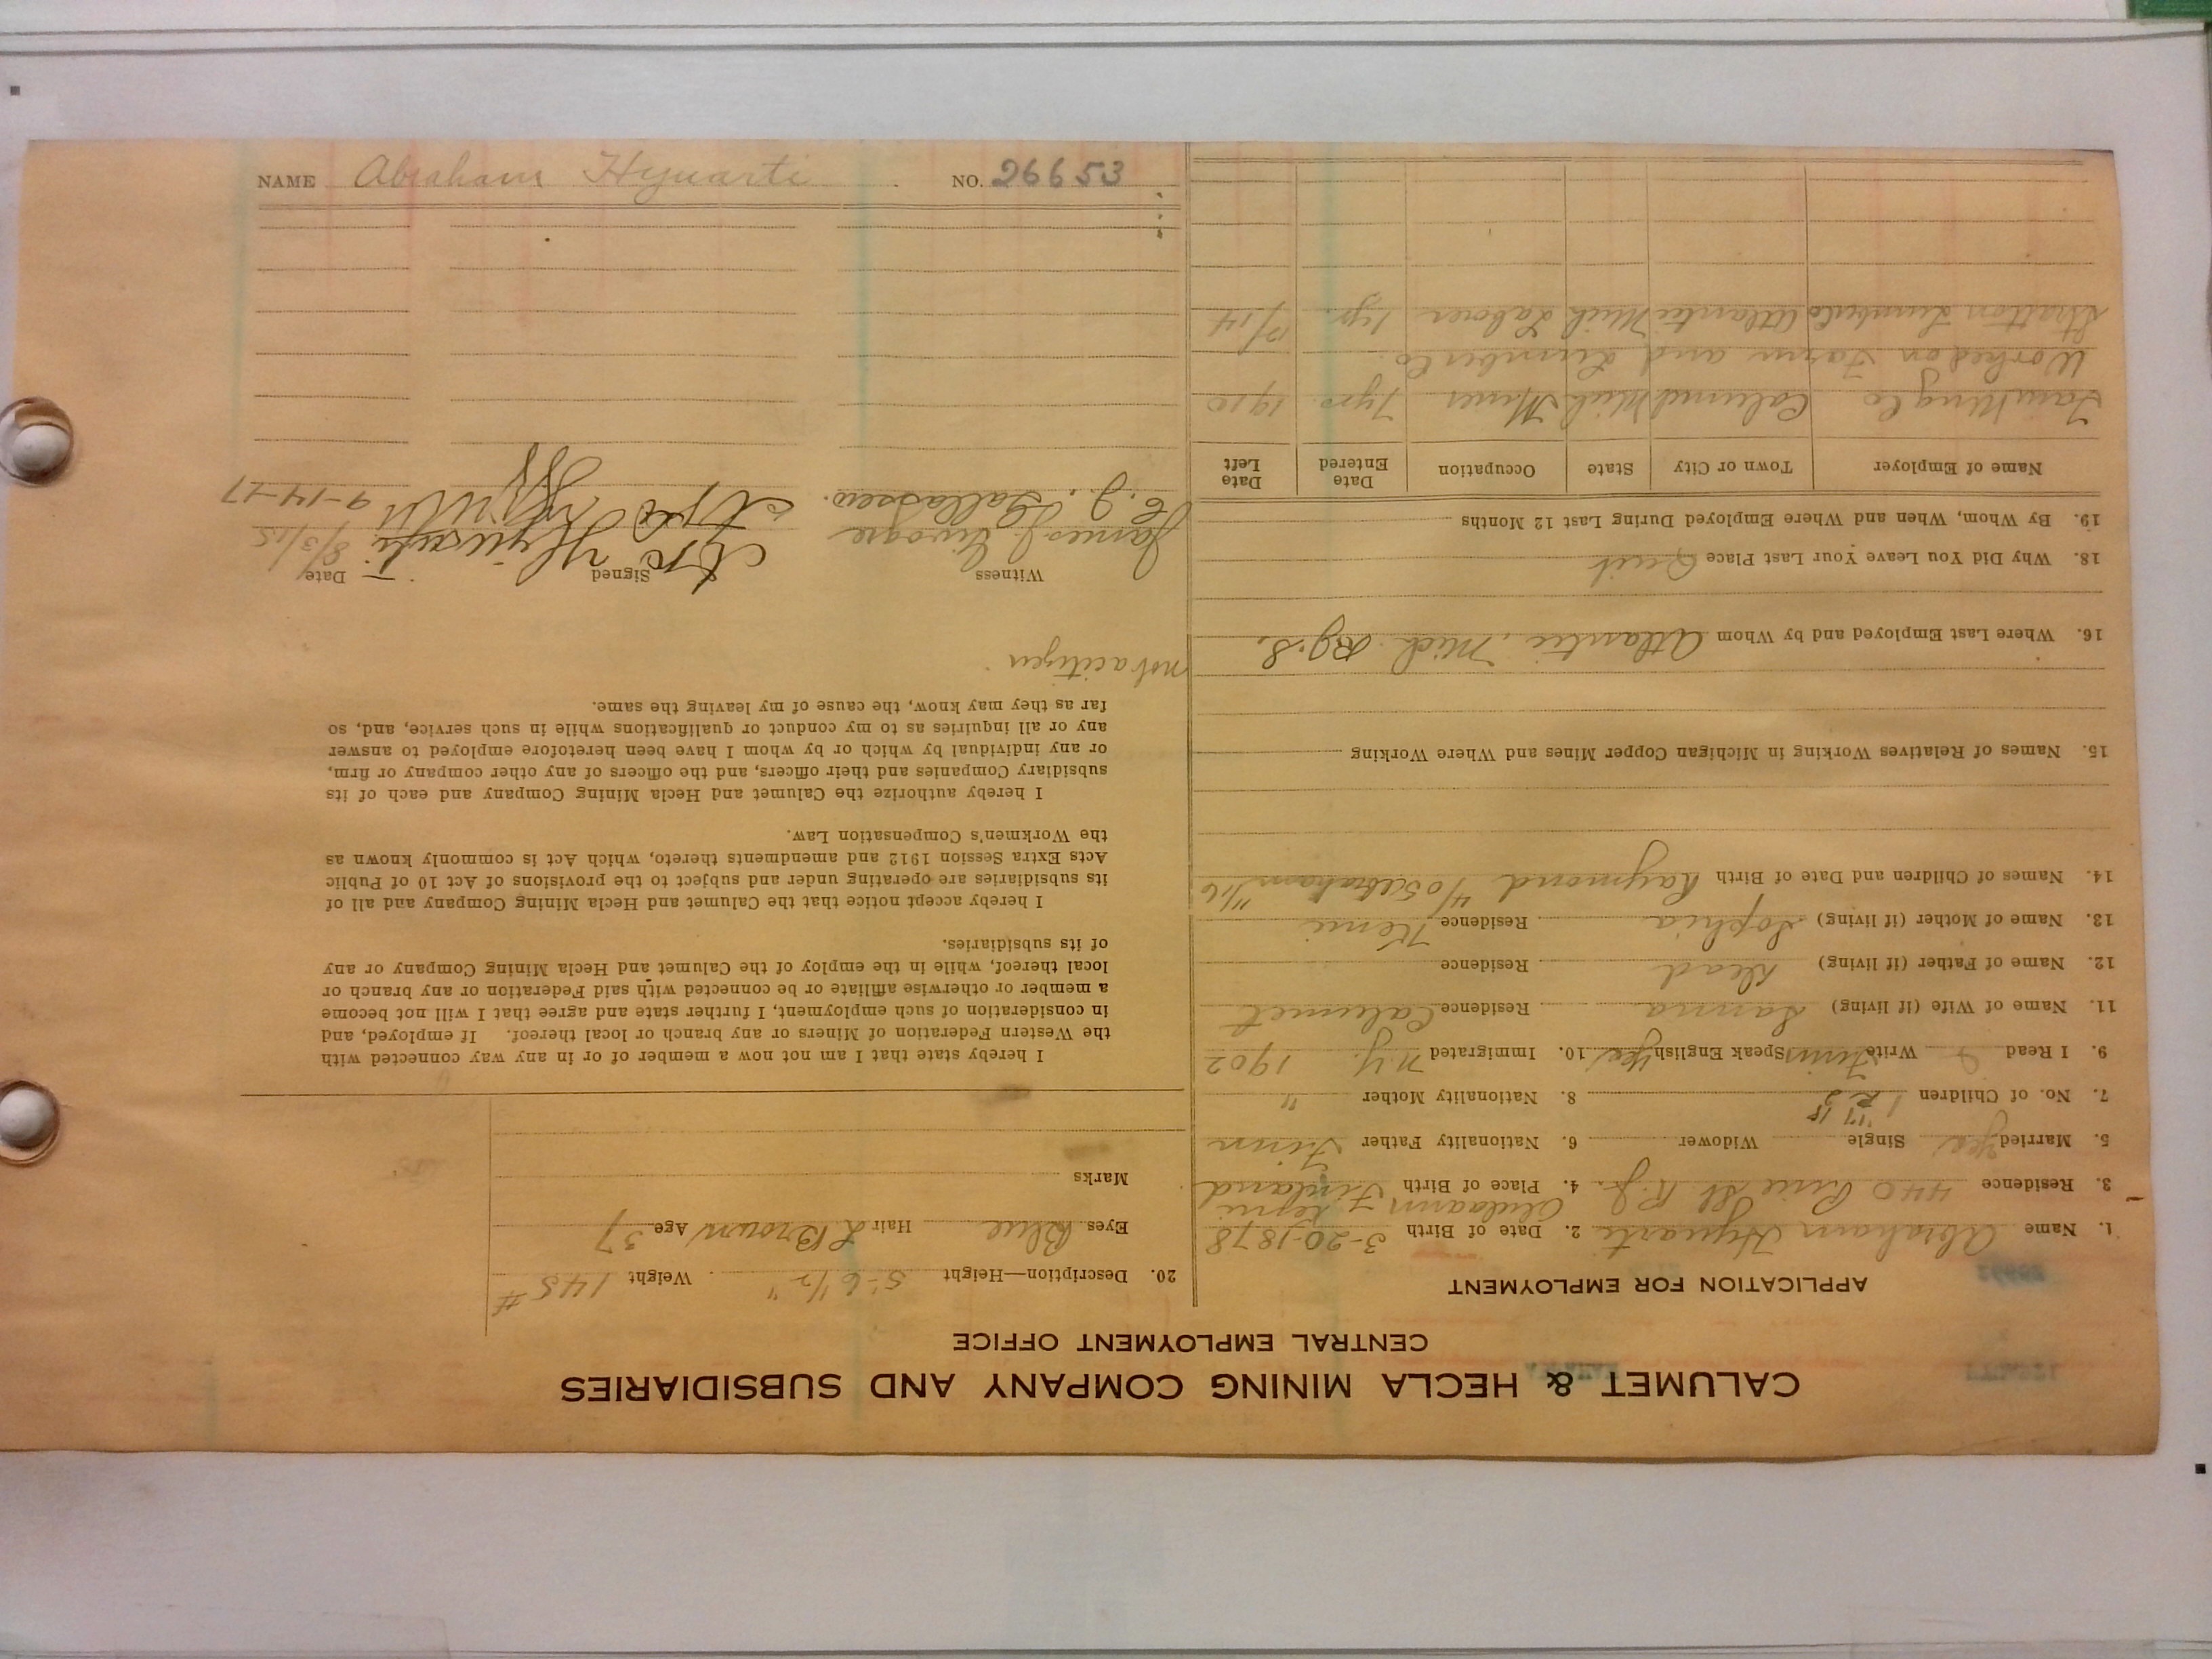 CALUMET & HECLA MINING COMPANY AND SUBSIDIARIES
CENTRAL EMPLOYMENT OFFICE
APPLICATION FOR EMPLOYMENT
1. Name Abraham Hyuarti 2. Date of Birth 3-20-1878
3. Residence 440 Pine St R.J. 4. Place of Birth Kemi Finland
5. Married yes Single Widower 6. Nationality Father Finn
7. No. of Children 8. Nationality Mother "
9. I Read Write Finn Speak English yes 10. Immigrated N.Y. 1902
11. Name of Wife (if living) Sanna Residence Calumet
12. Name of Father (if living) Dead Residence
13. Name of Mother (if living) Sophia Residence Kemi
14. Names of Children and Date of Birth Raymond 4/05 Abraham 11/16
15. Names of Relatives Working in Michigan Copper Mines and Where Working
16. Where Last Employed and by Whom Atlantic, Mich.
18. Why Did You Leave Your Last Place Quit
19. By Whom, When and Where Employed During Last 12 Months
Name of Employer Town or City State Occupation Date Entered Date Left
Tam Mng Co Calumet Mich Miner 7 yrs. 1910
Worked on Farm and Lumber Co.
Stratton Lumber Co Atlantic Mich Laborer 1 yr. 12/14
20. Description—Height 5-6 1/2" Weight 145 #
Eyes Blue Hair L Brown Age 37
Marks
I hereby state that I am not now a member of or in any way connected with
the Western Federation of Miners or any branch or local thereof. If employed, and
in consideration of such employment, I further state and agree that I will not become
a member or otherwise affiliate or be connected with said Federation or any branch or
local thereof, while in the employ of the Calumet and Hecla Mining Company or any
of its subsidiaries.
I hereby accept notice that the Calumet and Hecla Mining Company and all of
its subsidiaries are operating under and subject to the provisions of Act 10 of Public
Acts Extra Session 1912 and amendments thereto, which Act is commonly known as
the Workmen's Compensation Law.
I hereby authorize the Calumet and Hecla Mining Company and each of its
subsidiary Companies and their officers, and the officers of any other company or firm,
or any individual by which or by whom I have been heretofore employed to answer
any or all inquiries as to my conduct or qualifications while in such service, and, so
far as they may know, the cause of my leaving the same.
not a citizen
Witness Signed Date
James J. 8/3/15
9-14-17
NAME Abraham Hyuarti NO. 26653